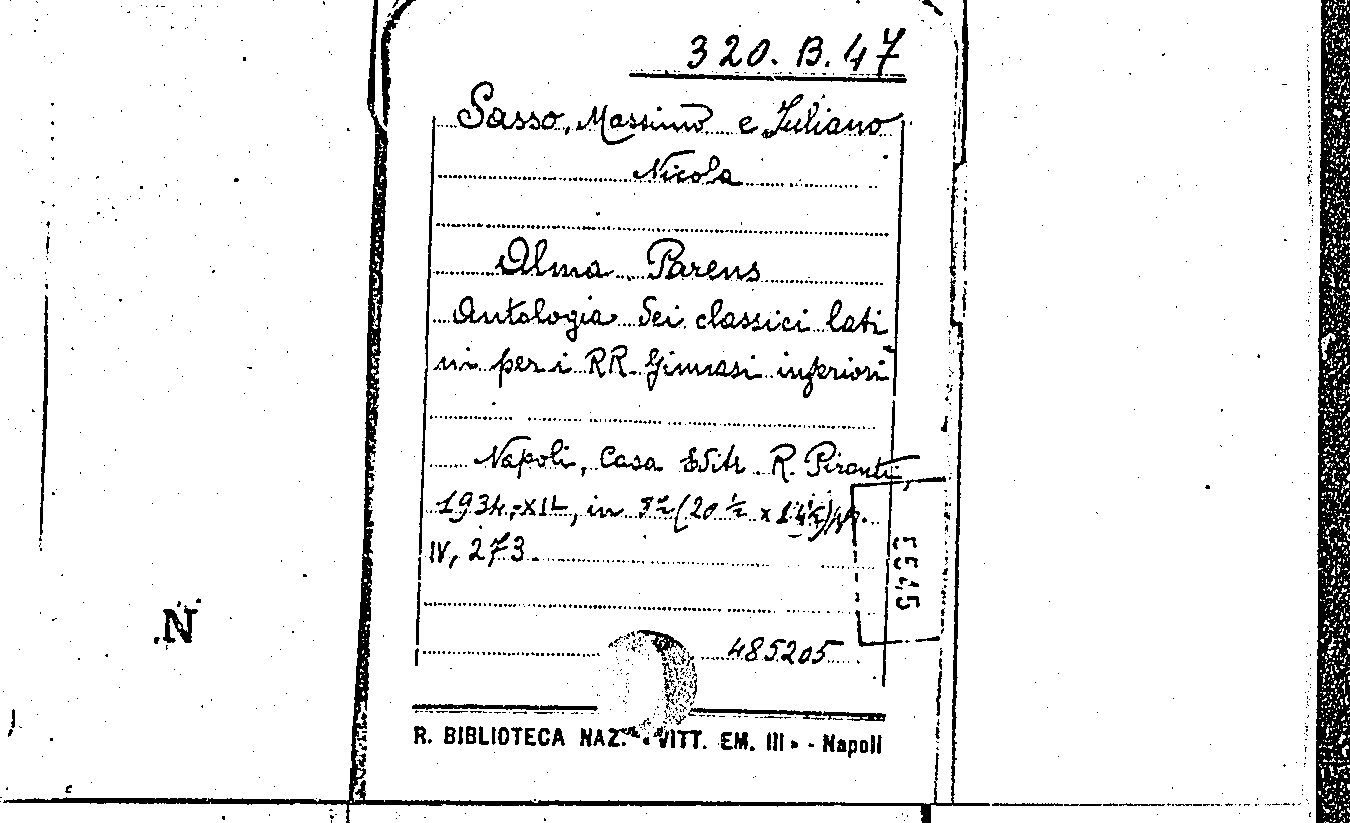 320. B. 47
Sasso, Massimo e Juliano
Nicola
Alma Parens
Antologia dei classici lati
ni per i RR. Ginnasi inferiori
Napoli, Casa Editr. R. Pironti,
1934,-XII, in 8º (20 ½ x 14½) pp.
IV, 273.
5545
485205
N
R. BIBLIOTECA NAZ. « VITT. EM. III » - Napoli